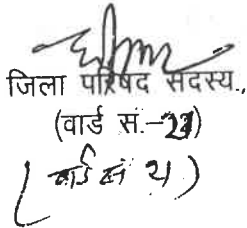 जिला परिषद सदस्य.,
(वार्ड सं.-21)
(वार्ड सं 21)